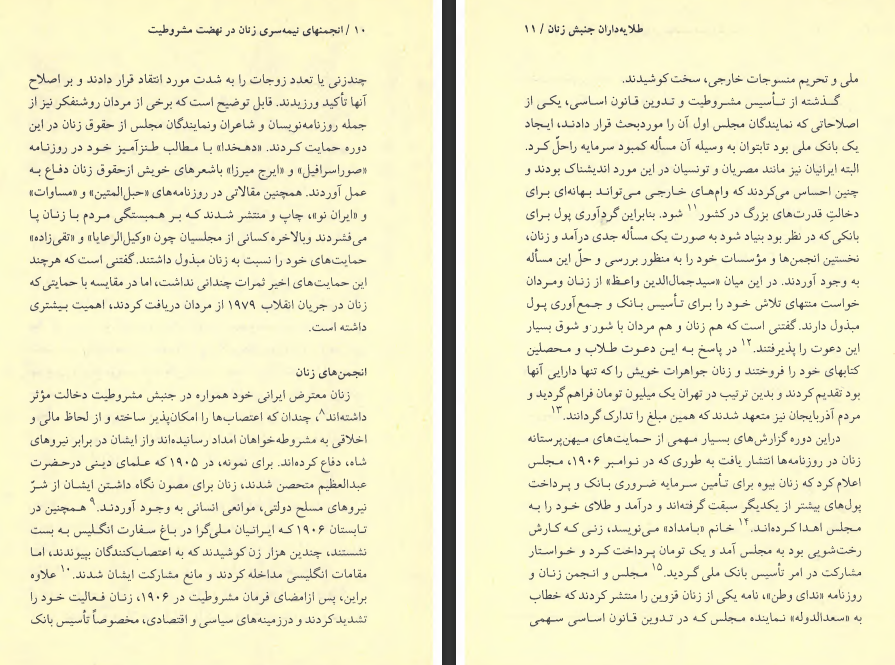 ۱۰ / انجمنهای نیمه‌سری زنان در نهضت مشروطیت
چندزنی یا تعدد زوجات را به شدت مورد انتقاد قرار دادند و بر اصلاح
آنها تأکید ورزیدند. قابل توضیح است که برخی از مردان روشنفکر نیز از
جمله روزنامه‌نویسان و شاعران ونمایندگان مجلس از حقوق زنان در این
دوره حمایت کردند. «دهخدا» با مطالب طنزآمیز خود در روزنامه
«صوراسرافیل» و «ایرج میرزا» باشعرهای خویش ازحقوق زنان دفاع به
عمل آوردند. همچنین مقالاتی در روزنامه‌های «حبل‌المتین» و «مساوات»
و «ایران نو»، چاپ و منتشر شدند که بر همبستگی مردم با زنان پا
می‌فشردند وبالاخره کسانی از مجلسیان چون «وکیل‌الرعایا» و «تقی‌زاده»
حمایت‌های خود را نسبت به زنان مبذول داشتند. گفتنی است که هرچند
این حمایت‌های اخیر ثمرات چندانی نداشت، اما در مقایسه با حمایتی که
زنان در جریان انقلاب ۱۹۷۹ از مردان دریافت کردند، اهمیت بیشتری
داشته است.
انجمن‌های زنان
زنان معترض ایرانی خود همواره در جنبش مشروطیت دخالت مؤثر
داشته‌اند۸، چندان که اعتصاب‌ها را امکان‌پذیر ساخته و از لحاظ مالی و
اخلاقی به مشروطه‌خواهان امداد رسانیده‌اند واز ایشان در برابر نیروهای
شاه، دفاع کرده‌اند. برای نمونه، در ۱۹۰۵ که علمای دینی درحضرت
عبدالعظیم متحصن شدند، زنان برای مصون نگاه داشتن ایشان از شرّ
نیروهای مسلح دولتی، موانعی انسانی به وجود آوردند.۹ همچنین در
تابستان ۱۹۰۶ که ایرانیان ملی‌گرا در باغ سفارت انگلیس به بست
نشستند، چندین هزار زن کوشیدند که به اعتصاب‌کنندگان بپیوندند، اما
مقامات انگلیسی مداخله کردند و مانع مشارکت ایشان شدند.۱۰ علاوه
براین، پس ازامضای فرمان مشروطیت در ۱۹۰۶، زنان فعالیت خود را
تشدید کردند و درزمینه‌های سیاسی و اقتصادی، مخصوصاً تأسیس بانک
طلایه‌داران جنبش زنان / ۱۱
ملی و تحریم منسوجات خارجی، سخت کوشیدند.
گذشته از تأسیس مشروطیت و تدوین قانون اساسی، یکی از
اصلاحاتی که نمایندگان مجلس اول آن را موردبحث قرار دادند، ایجاد
یک بانک ملی بود تابتوان به وسیله آن مسأله کمبود سرمایه راحلّ کرد.
البته ایرانیان نیز مانند مصریان و تونسیان در این مورد اندیشناک بودند و
چنین احساس می‌کردند که وام‌های خارجی می‌تواند بهانه‌ای برای
دخالتِ قدرت‌های بزرگ در کشور۱۱ شود. بنابراین گردآوری پول برای
بانکی که در نظر بود بنیاد شود به صورت یک مسأله جدی درآمد و زنان،
نخستین انجمن‌ها و مؤسسات خود را به منظور بررسی و حلّ این مسأله
به وجود آوردند. در این میان «سیدجمال‌الدین واعظ» از زنان ومردان
خواست منتهای تلاش خود را برای تأسیس بانک و جمع‌آوری پول
مبذول دارند. گفتنی است که هم زنان و هم مردان با شور و شوق بسیار
این دعوت را پذیرفتند.۱۲ در پاسخ به این دعوت طلاب و محصلین
کتابهای خود را فروختند و زنان جواهرات خویش را که تنها دارایی آنها
بود تقدیم کردند و بدین ترتیب در تهران یک میلیون تومان فراهم گردید و
مردم آذربایجان نیز متعهد شدند که همین مبلغ را تدارک گردانند.۱۳
دراین دوره گزارش‌های بسیار مهمی از حمایت‌های میهن‌پرستانه
زنان در روزنامه‌ها انتشار یافت به طوری که در نوامبر ۱۹۰۶، مجلس
اعلام کرد که زنان بیوه برای تأمین سرمایه ضروری بانک و پرداخت
پول‌های بیشتر از یکدیگر سبقت گرفته‌اند و درآمد و طلای خود را به
مجلس اهدا کرده‌اند.۱۴ خانم «بامداد» می‌نویسد، زنی که کارش
رخت‌شویی بود به مجلس آمد و یک تومان پرداخت کرد و خواستار
مشارکت در امر تأسیس بانک ملی گردید.۱۵ مجلس و انجمن زنان و
روزنامه «ندای وطن»، نامه یکی از زنان قزوین را منتشر کردند که خطاب
به «سعدالدوله» نماینده مجلس که در تدوین قانون اساسی سهمی